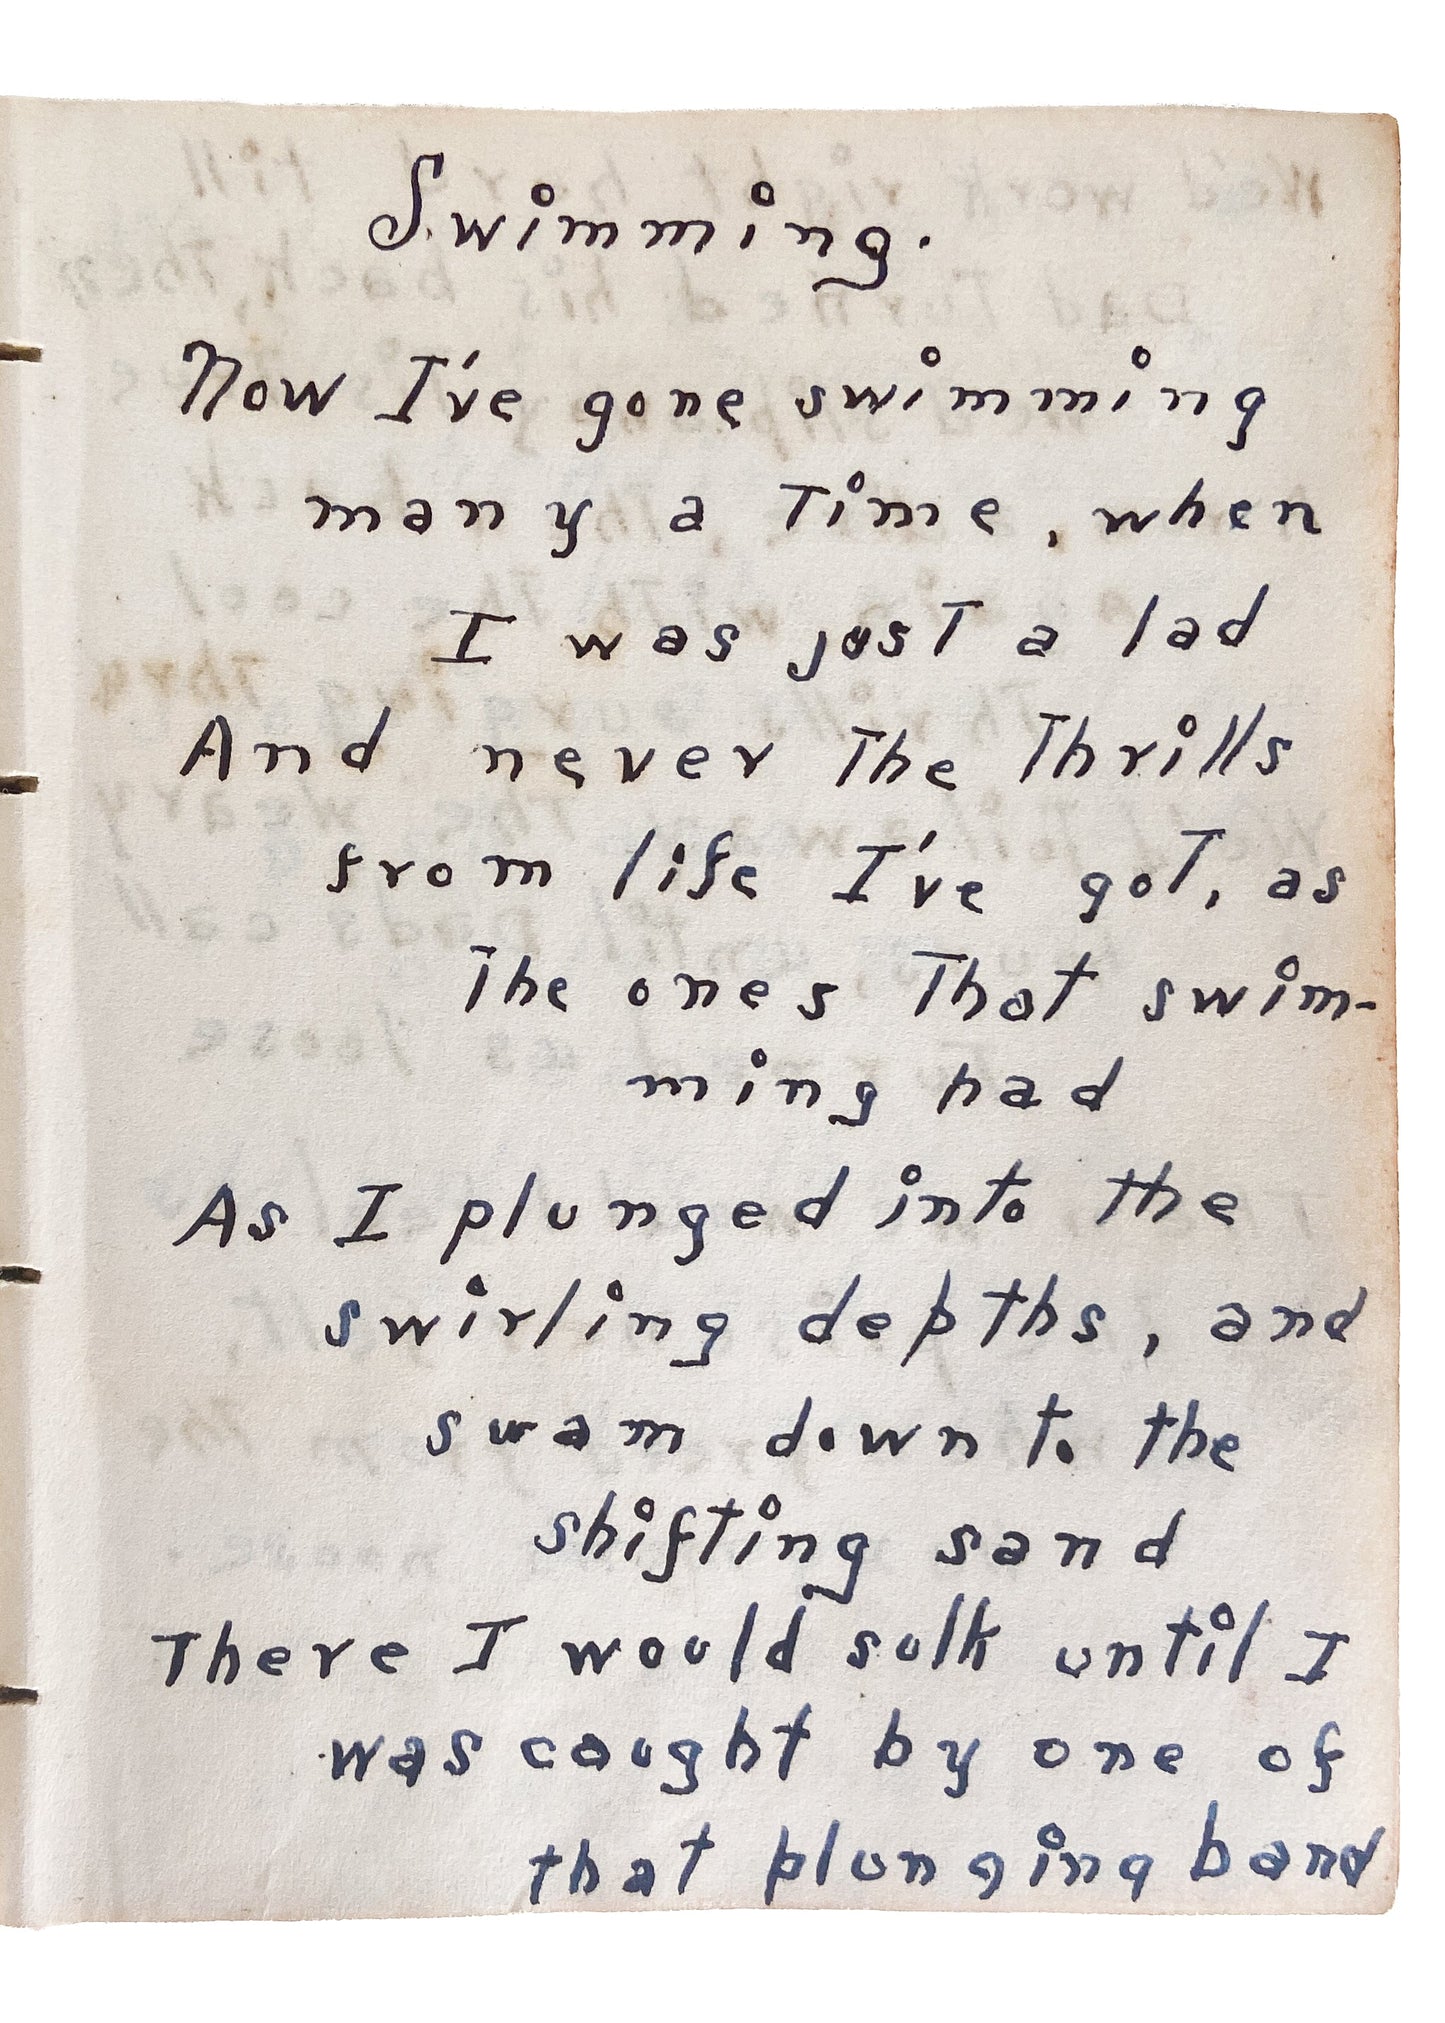 Swimming.
Now I've gone swimming
many a time, when
I was just a lad
And never the thrills
from life I've got, as
the ones that swim-
ming had
As I plunged into the
swirling depths, and
swam down to the
shifting sand
There I would sulk until I
was caught by one of
that plunging band